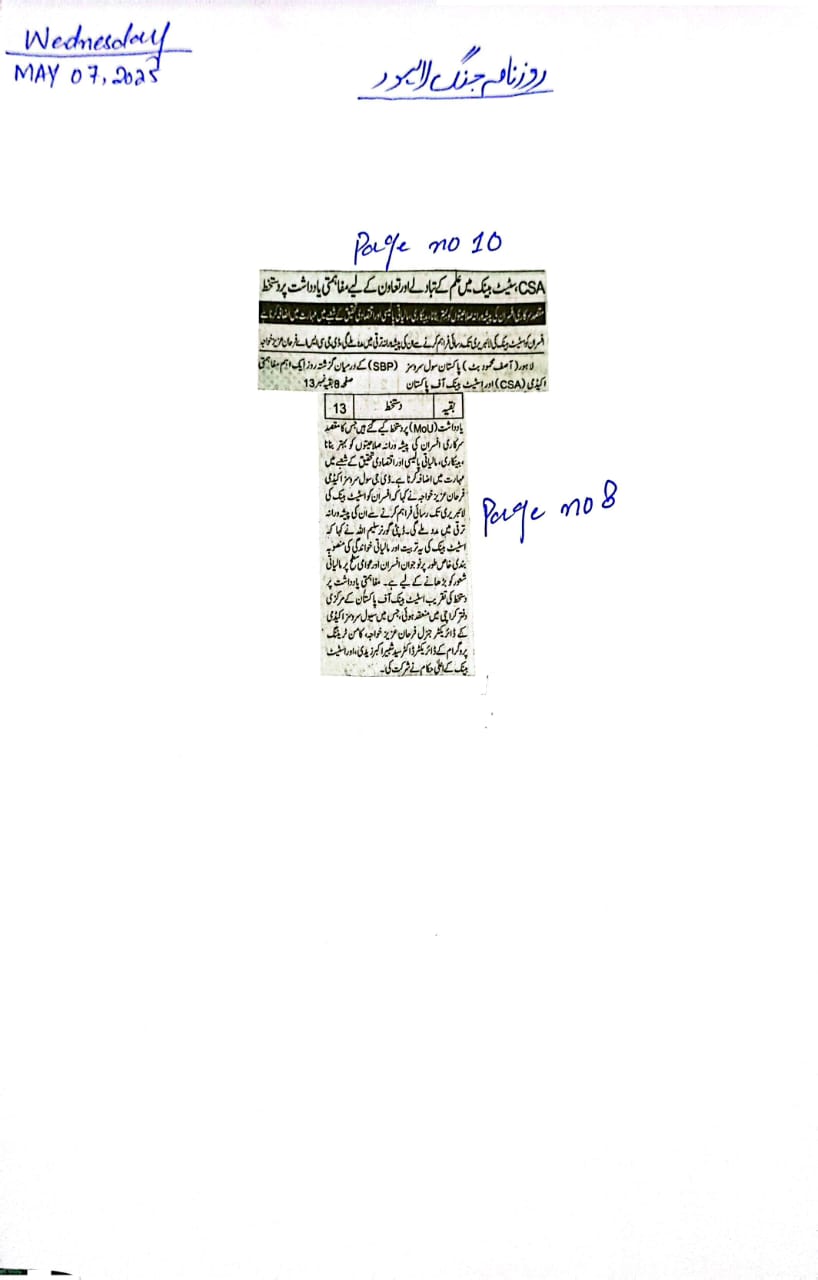 Wednesday
MAY 07, 2025
روزنامہ جنگ لاہور
Page no 10
CSA، سٹیٹ بینک میں علم کے تبادلے اور تعاون کے لیے مفاہمتی یادداشت پر دستخط
مقصد سرکاری افسران کی پیشہ ورانہ صلاحیتوں کو بہتر بنانا، بینکاری، مالیاتی پالیسی اور اقتصادی تحقیق کے شعبے میں مہارت میں اضافہ کرنا ہے
افسران کو اسٹیٹ بینک کی لائبریری تک رسائی فراہم کرنے سے ان کی پیشہ ورانہ ترقی میں مدد ملے گی، ڈی جی سی ایس اے فرحان عزیز خواجہ
لاہور (آصف محمود بٹ) پاکستان سول سروسز
اکیڈمی (CSA) اور اسٹیٹ بینک آف پاکستان
(SBP) کے درمیان گزشتہ روز ایک اہم مفاہمتی
صفحہ 8 بقیہ نمبر 13
بقیہ دستخط 13
یادداشت (MoU) پر دستخط کیے گئے ہیں جس کا مقصد
سرکاری افسران کی پیشہ ورانہ صلاحیتوں کو بہتر بنانا
، بینکاری، مالیاتی پالیسی اور اقتصادی تحقیق کے شعبے میں
مہارت میں اضافہ کرنا ہے۔ ڈی جی سول سروسز اکیڈمی
فرحان عزیز خواجہ نے کہا کہ افسران کو اسٹیٹ بینک کی
لائبریری تک رسائی فراہم کرنے سے ان کی پیشہ ورانہ
ترقی میں مدد ملے گی۔ ڈپٹی گورنر سلیم اللہ نے کہا کہ
اسٹیٹ بینک کی یہ تربیت اور مالیاتی خواندگی کی منصوبہ
بندی خاص طور پر نوجوان افسران اور عوامی سطح پر مالیاتی
شعور کو بڑھانے کے لیے ہے۔ مفاہمتی یادداشت پر
دستخط کی تقریب اسٹیٹ بینک آف پاکستان کے مرکزی
دفتر کراچی میں منعقد ہوئی، جس میں سیول سروسز اکیڈمی
کے ڈائریکٹر جنرل فرحان عزیز خواجہ، کامن ٹریننگ
پروگرام کے ڈائریکٹر ڈاکٹر سید شبیر اکبر زیدی، اور اسٹیٹ
بینک کے اعلیٰ حکام نے شرکت کی۔
Page no 8